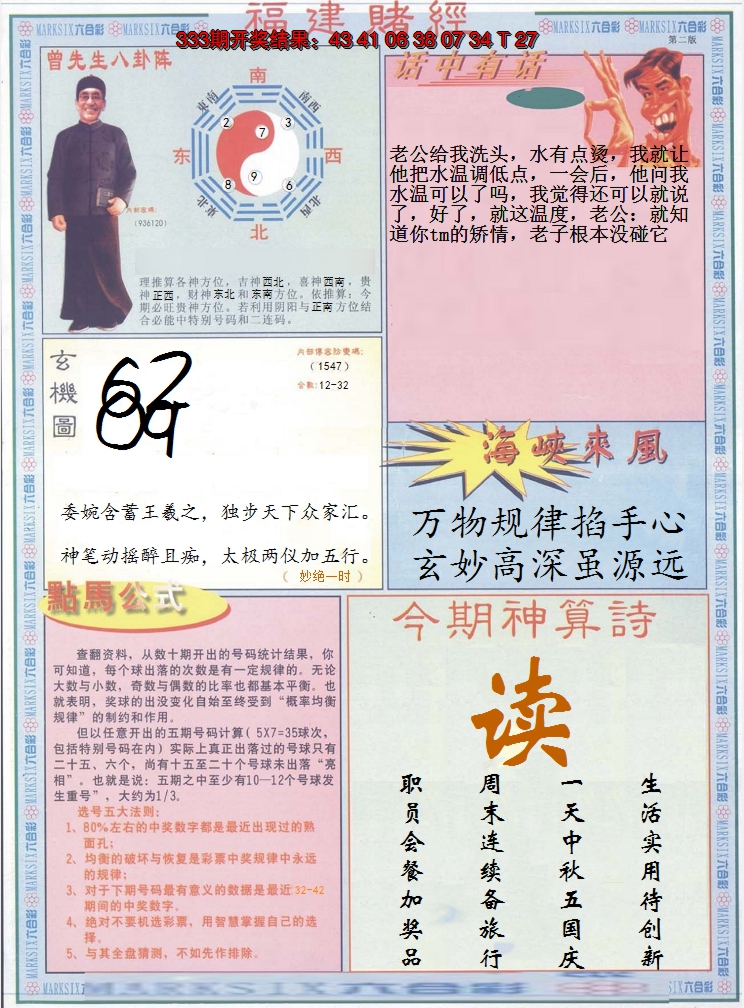 福建賭經
333期开奖结果：43 41 06 38 07 34 T 27
第二版
MARKSIX六合彩
曾先生八卦阵
南
東南
南西
2
7
3
东
西
8
9
6
東北
北西
北
(936120)
理推算各神方位，吉神西北，喜神西南，贵
神正西，财神东北和东南方位。依推算：今
期必旺贵神方位。若利用阴阳与正南方位结
合必能中特别号码和二连码。
话中有话
老公给我洗头，水有点烫，我就让
他把水温调低点，一会后，他问我
水温可以了吗，我觉得还可以就说
了，好了，就这温度，老公：就知
道你tm的矫情，老子根本没碰它
玄機圖
(1547)
合数:12-32
委婉含蓄王羲之，独步天下众家汇。
神笔动摇醉且痴，太极两仪加五行。
（ 妙绝一时 ）
海峽來風
万物规律掐手心
玄妙高深虽源远
點馬公式
查翻资料，从数十期开出的号码统计结果，你
可知道，每个球出落的次数是有一定规律的。无论
大数与小数，奇数与偶数的比率也都基本平衡。也
就表明，奖球的出没变化自始至终受到“概率均衡
规律”的制约和作用。
但以任意开出的五期号码计算( 5X7=35球次，
包括特别号码在内) 实际上真正出落过的号球只有
二十五、六个，尚有十五至二十个号球未出落“亮
相”。也就是说：五期之中至少有10—12个号球发
生重号”，大约为1/3。
选号五大法则：
1、80%左右的中奖数字都是最近出现过的熟
面孔；
2、均衡的破坏与恢复是彩票中奖规律中永远
的规律；
3、对于下期号码最有意义的数据是最近32-42
期间的中奖数字。
4、绝对不要机选彩票，用智慧掌握自己的选
择。
5、与其全盘猜测，不如先作排除。
今期神算詩
读
生活实用待创新
一天中秋五国庆
周末连续备旅行
职员会餐加奖品